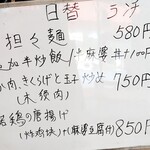 日替 ランチ
担々麺 580円
追加半炒飯/半麻婆丼+100円
肉、きくらげと玉子炒め 750円
(木須肉)
若鶏の唐揚げ
(炸鶏塊)(麻婆豆腐付) 850円